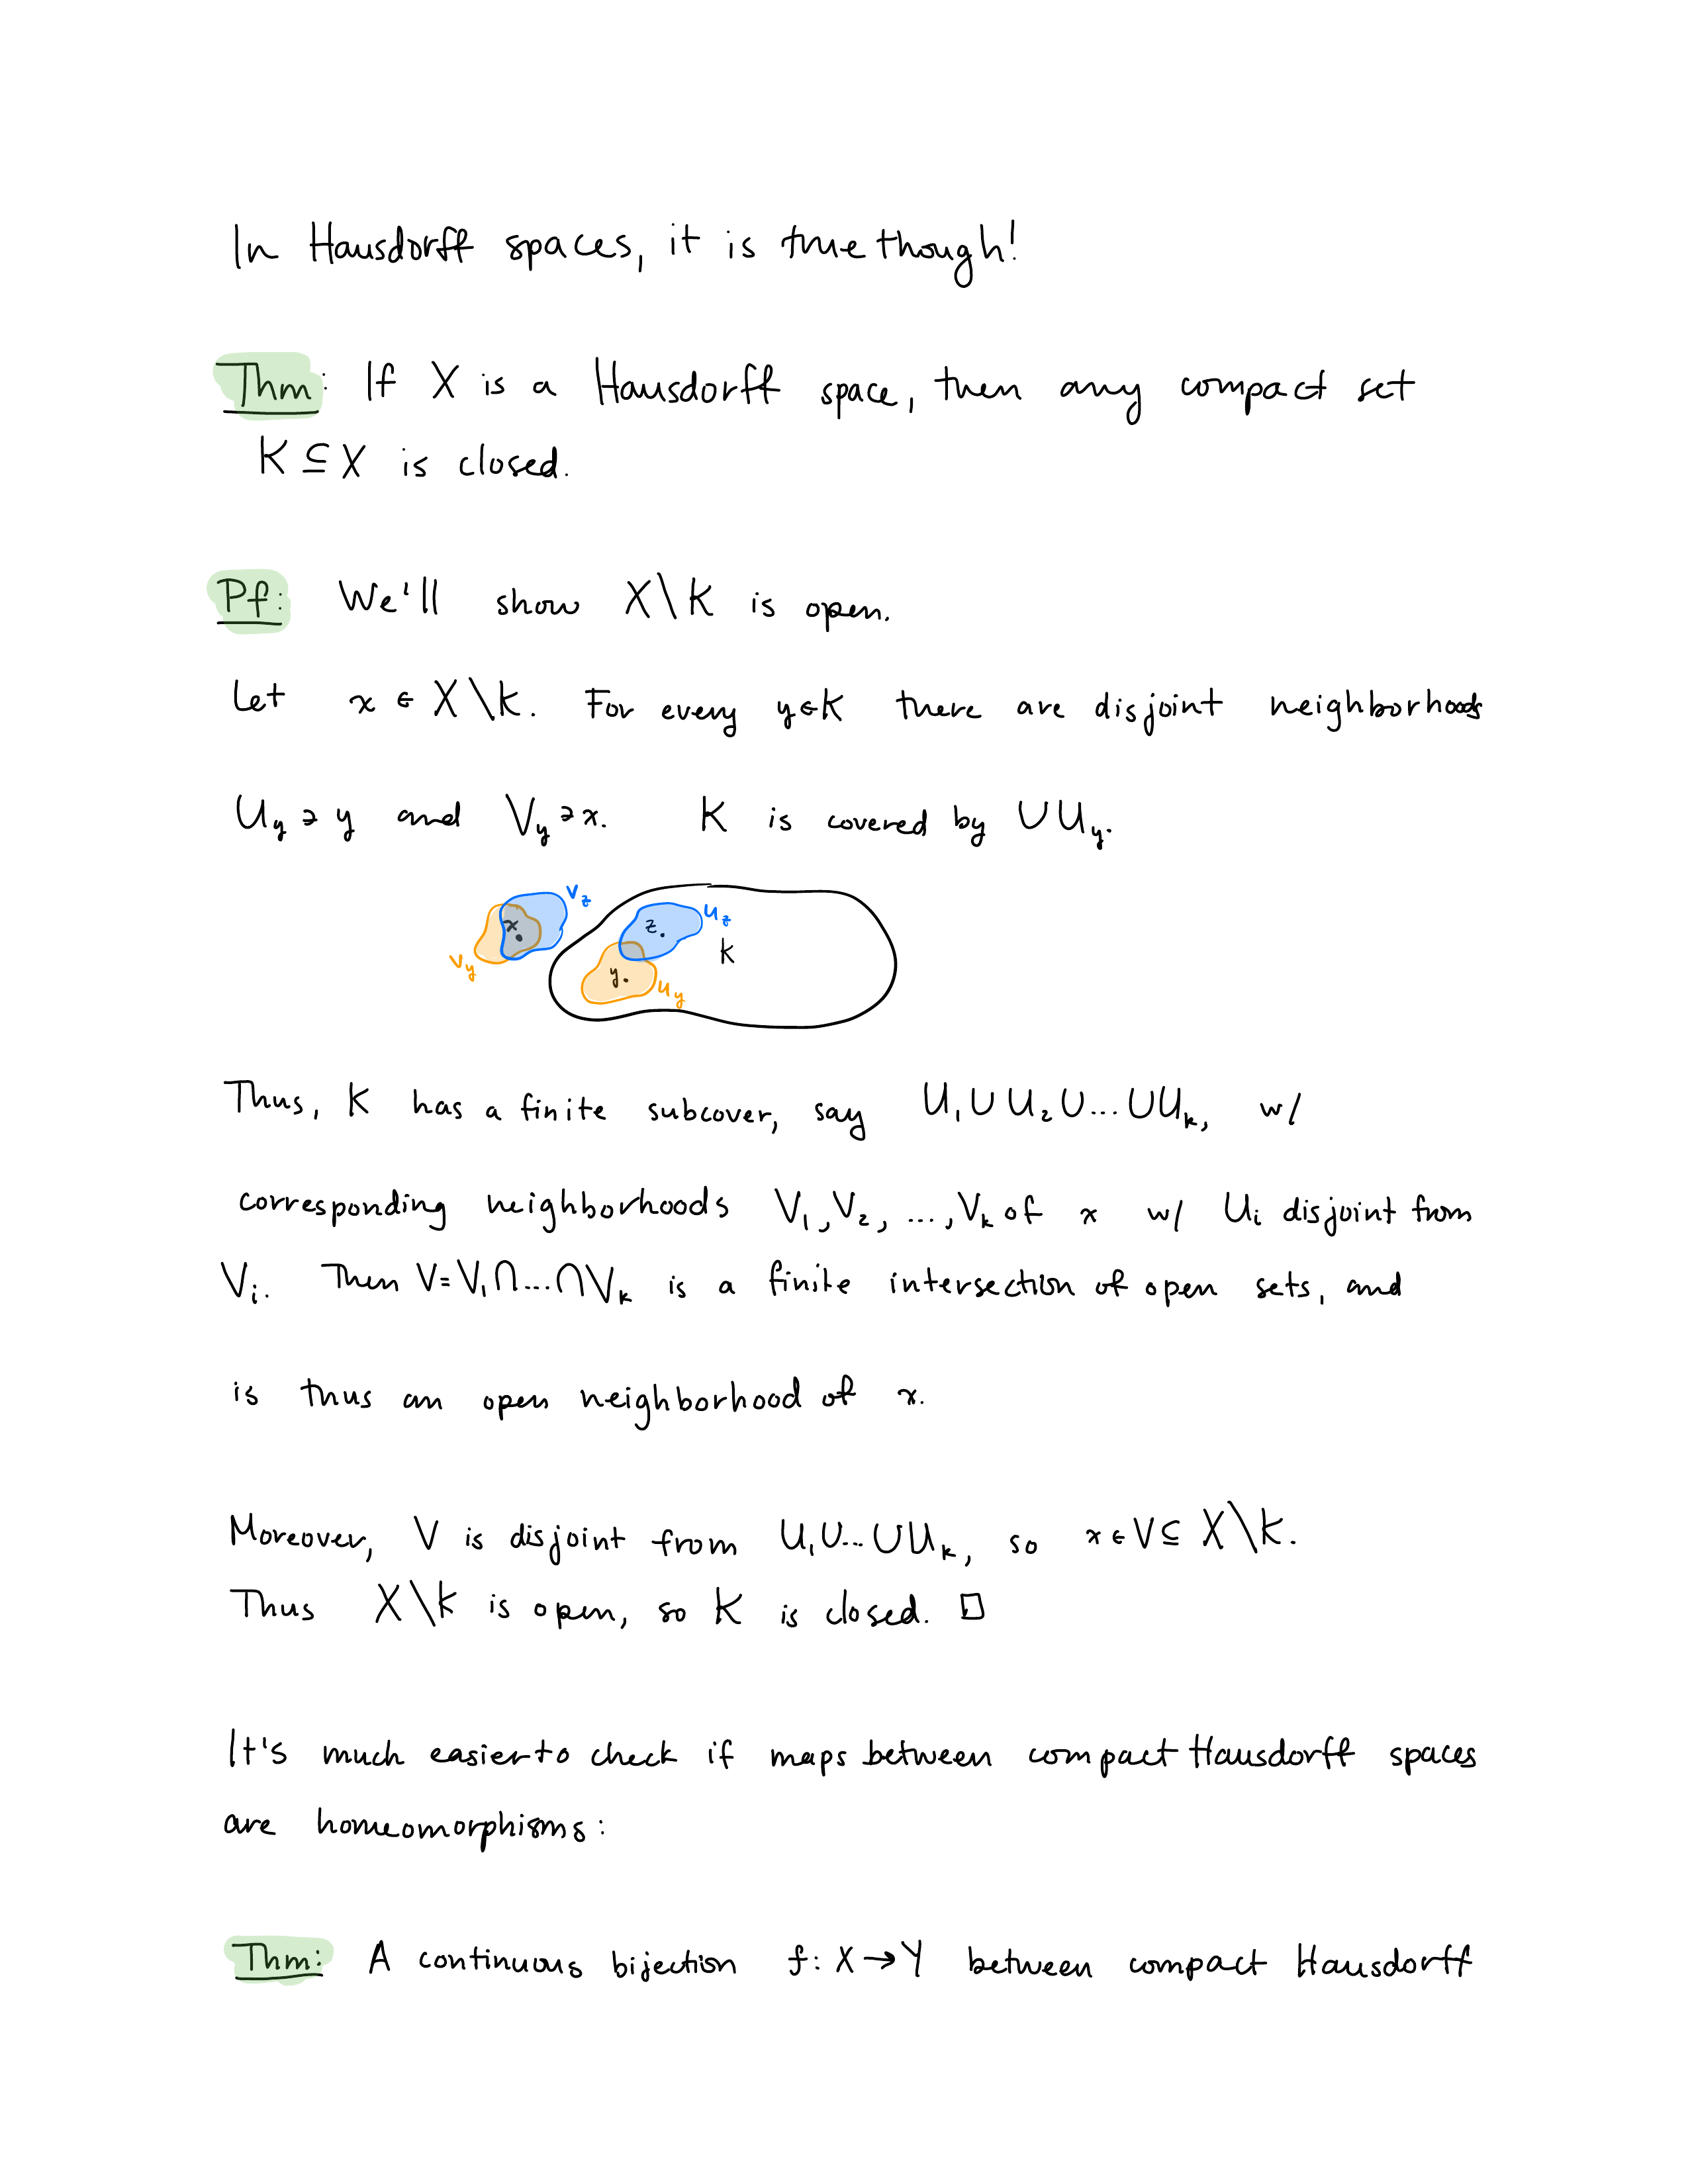 In Hausdorff spaces, it is true though!
Thm: If X is a Hausdorff space, then any compact set
K ⊆ X is closed.
Pf: We'll show X\K is open.
Let x ∈ X\K. For every y∈K there are disjoint neighborhoods
U_y ∋ y and V_y ∋ x. K is covered by ∪U_y.
V_z
x.
V_y
z.
U_z
K
y.
U_y
Thus, K has a finite subcover, say U₁∪U₂∪...∪U_k, w/
corresponding neighborhoods V₁,V₂, ...,V_k of x w/ U_i disjoint from
V_i. Then V=V₁∩...∩V_k is a finite intersection of open sets, and
is thus an open neighborhood of x.
Moreover, V is disjoint from U₁∪...∪U_k, so x∈V⊆ X\K.
Thus X\K is open, so K is closed. □
It's much easier to check if maps between compact Hausdorff spaces
are homeomorphisms:
Thm: A continuous bijection f: X→Y between compact Hausdorff